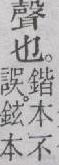 聲也。鍇本不
誤。鉉本